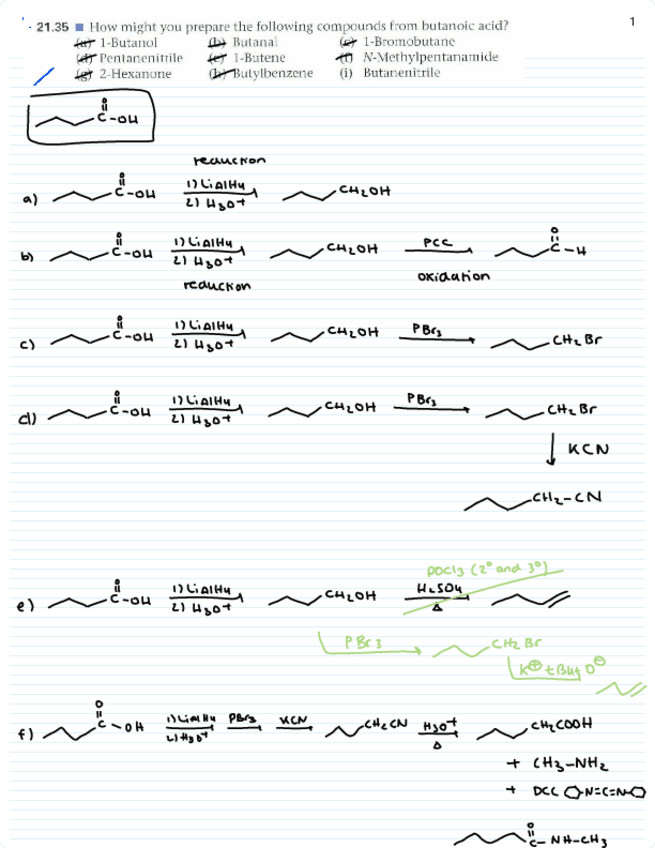 1
21.35 ■ How might you prepare the following compounds from butanoic acid?
(a) 1-Butanol (b) Butanal (c) 1-Bromobutane
(d) Pentanenitrile (e) 1-Butene (f) N-Methylpentanamide
(g) 2-Hexanone (h) Butylbenzene (i) Butanenitrile
O
C-OH
reduction
a) O C-OH 1) LiAlH4 2) H3O+ CH2OH
b) O C-OH 1) LiAlH4 2) H3O+ CH2OH PCC O C-H
reduction oxidation
c) O C-OH 1) LiAlH4 2) H3O+ CH2OH PBr3 CH2Br
d) O C-OH 1) LiAlH4 2) H3O+ CH2OH PBr3 CH2Br
KCN
CH2-CN
POCl3 (2° and 3°)
e) O C-OH 1) LiAlH4 2) H3O+ CH2OH H2SO4 Δ
PBr3 CH2Br
K⊕ tBut O⊖
f) O C-OH 1) LiAlH4 2) H3O+ PBr3 KCN CH2CN H3O+ Δ CH2COOH
+ CH3-NH2
+ DCC N=C=N
O
C-NH-CH3